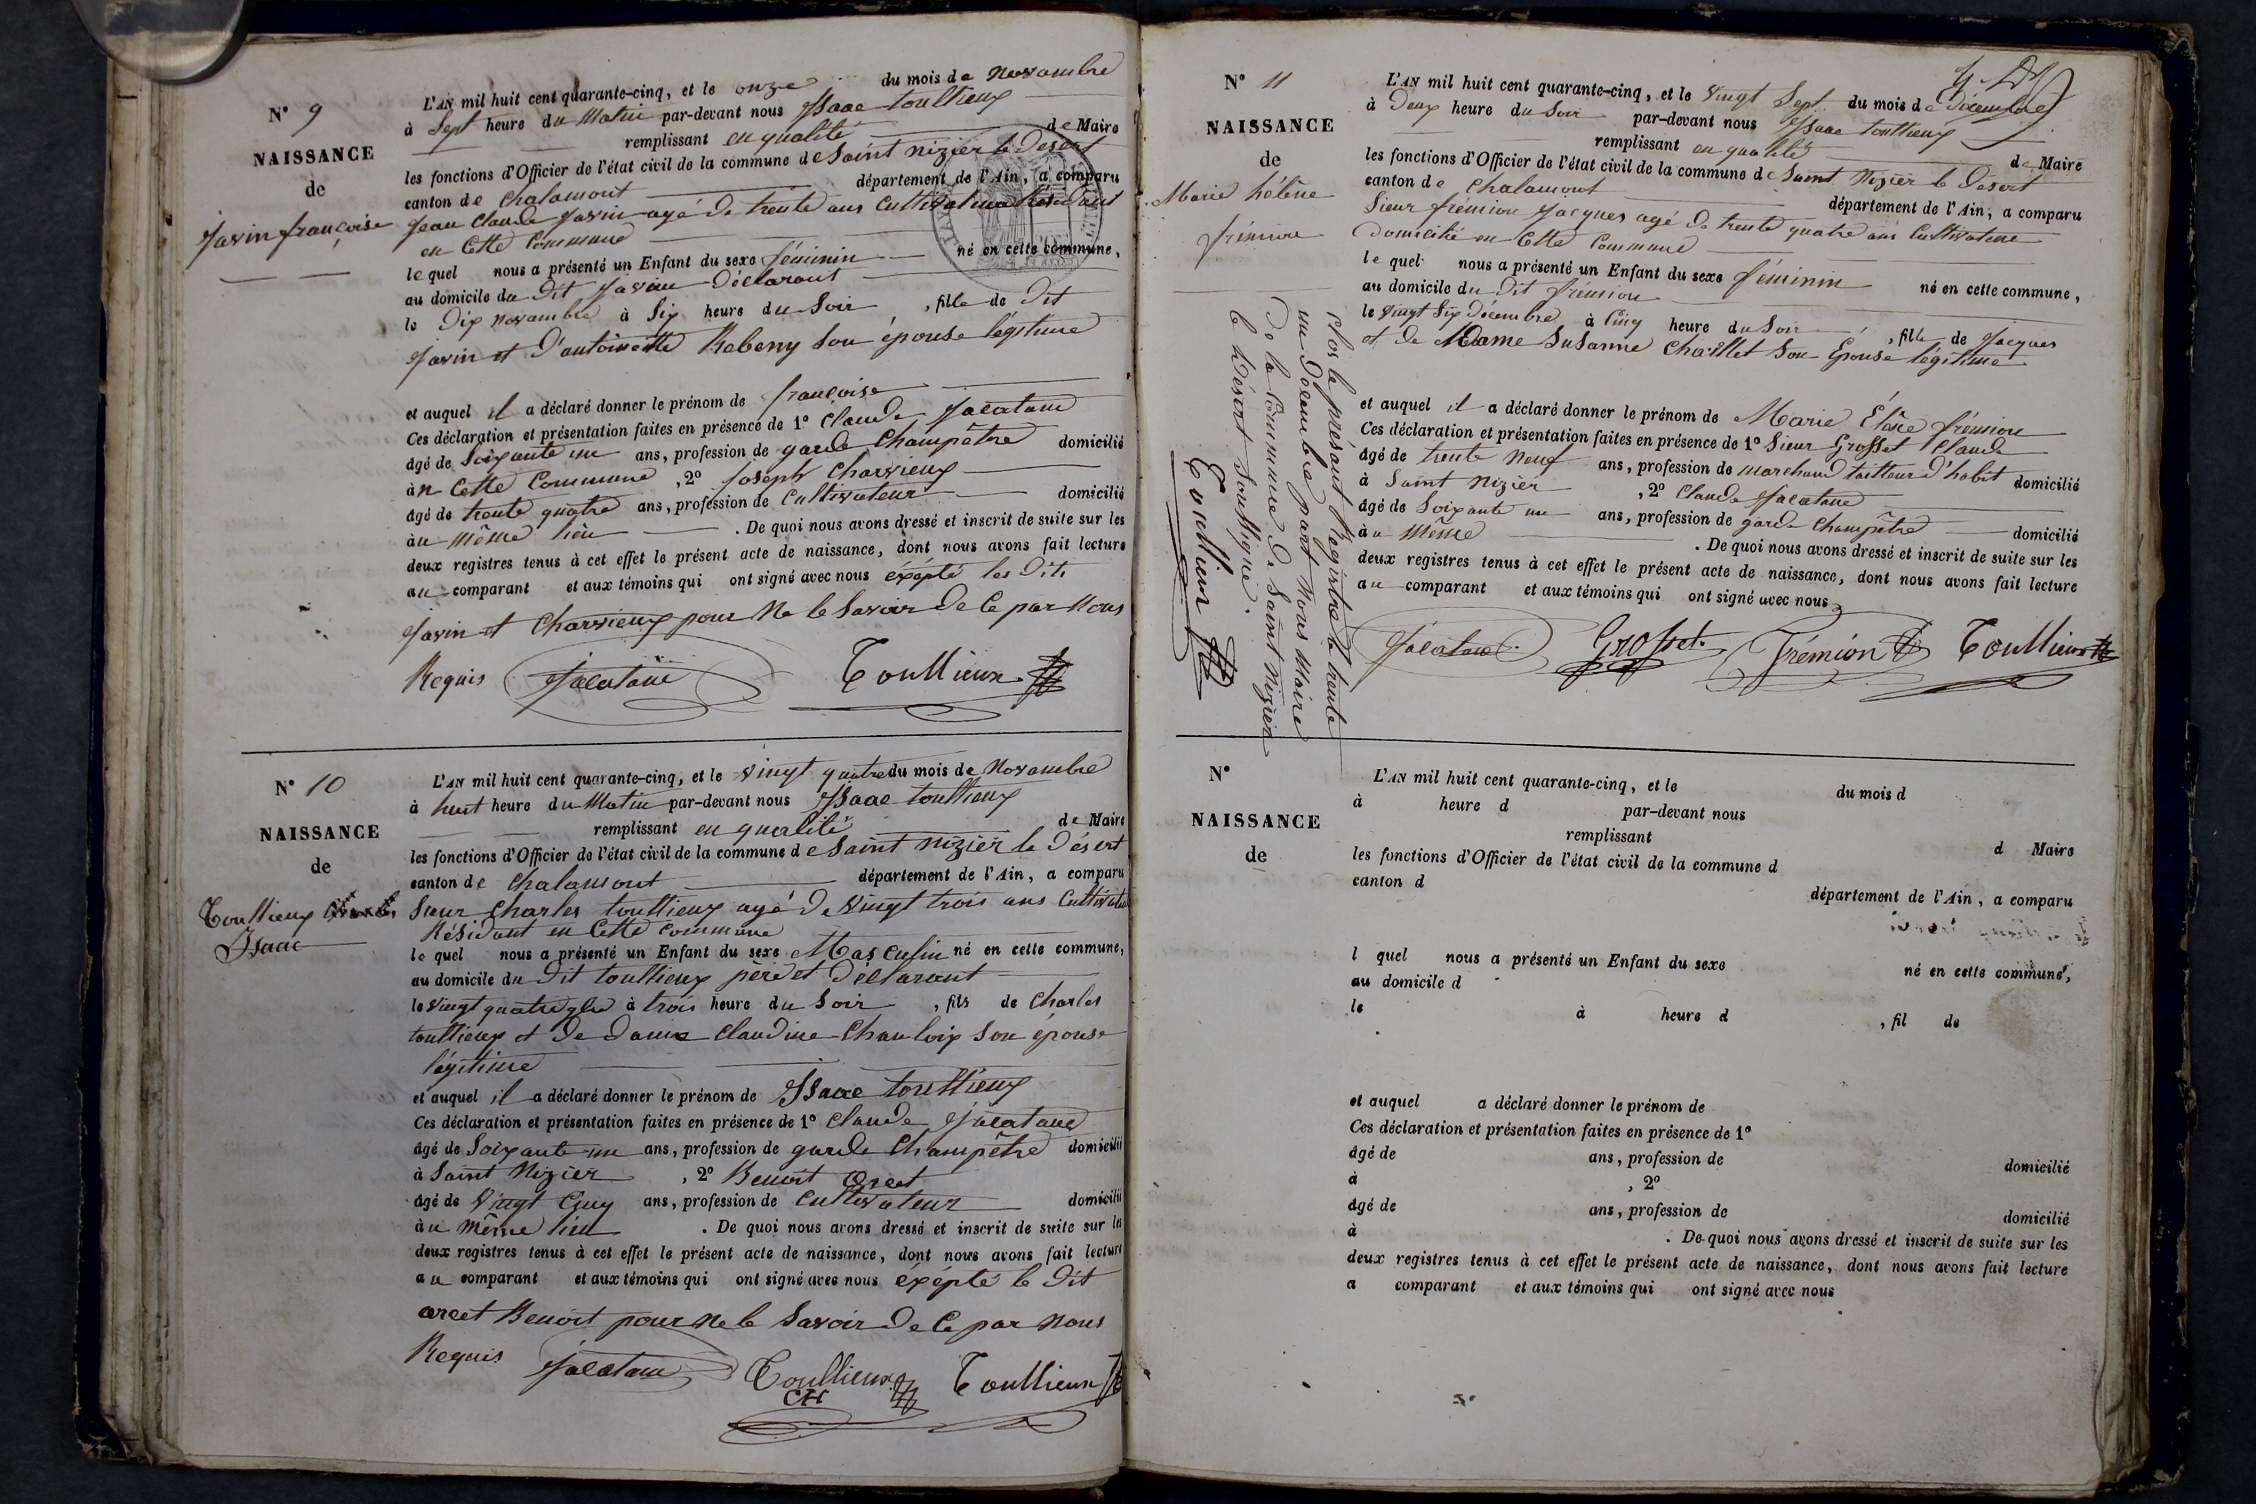 N° 9
NAISSANCE
de
Javin françoise
L'AN mil huit cent quarante-cinq, et le onze du mois de Novambre
à Sept heure du Matin par-devant nous Isaac toullieux
remplissant en qualité de Maire
les fonctions d'Officier de l'état civil de la commune de Saint Nizier le Desert
canton de Chalamont département de l'Ain, a comparu
Jean Claude Javin agé de trente ans Cultivateur Résidant
en Cette Commune
lequel nous a présenté un Enfant du sexe féminin né en cette commune,
au domicile du dit Javin Déclarant
le Dix Novambre à Six heure du Soir, fille de Dit
Javin et d'antoinette Rebeny Son épouse légitime
et auquel il a déclaré donner le prénom de françoise
Ces déclaration et présentation faites en présence de 1° Claude Jacatane
âgé de Soixante un ans, profession de garde Champêtre domicilié
àn Cette Commune, 2° Joseph Charvieux
âgé de trente quatre ans, profession de Cultivateur domicilié
àu même lieu. De quoi nous avons dressé et inscrit de suite sur les
deux registres tenus à cet effet le présent acte de naissance, dont nous avons fait lecture
au comparant et aux témoins qui ont signé avec nous éxépté les Dits
Javin et Charvieux pour Ne le Savoir De Ce par Nous
Requis Jacatane Toullieux
N° 10
NAISSANCE
de
Toullieux
Isaac
L'AN mil huit cent quarante-cinq, et le vingt quatre du mois de Novambre
à huit heure du Matin par-devant nous Isaac toullieux
remplissant en qualité de Maire
les fonctions d'Officier de l'état civil de la commune de Saint Nizier le Désert
canton de Chalamont département de l'Ain, a comparu
Sieur Charles toullieux agé de Vingt trois ans Cultivateu
Résidant en Cette Commune
le quel nous a présenté un Enfant du sexe Masculin né en cette commune,
au domicile du Dit toullieux père et Déclarant
le Vingt quatre 9bre à trois heure du Soir, fils de Charles
toullieux et De dame Claudine Chanloix Son épouse
légitime
et auquel il a déclaré donner le prénom de Isaac toullieux
Ces déclaration et présentation faites en présence de 1° Claude Jacatane
âgé de Soixante un ans, profession de garde Champêtre domicilié
à Saint Nizier, 2° Benoit Orcet
âgé de Vingt Cinq ans, profession de Cultivateur domicilié
àu même lieu. De quoi nous avons dressé et inscrit de suite sur les
deux registres tenus à cet effet le présent acte de naissance, dont nous avons fait lecture
au comparant et aux témoins qui ont signé avec nous éxépté le Dit
orcet Benoit pour Ne le Savoir De Ce par Nous
Requis Jacatane Toullieux CH Toullieux
N° 11
NAISSANCE
de
Marie hélène
frémion
L'AN mil huit cent quarante-cinq, et le Vingt Sept du mois de Décembre
à Deux heure du Soir par-devant nous Isaac toullieux
remplissant en qualité de Maire
les fonctions d'Officier de l'état civil de la commune de Saint Nizier le Désert
canton de Chalamont département de l'Ain, a comparu
Sieur frémion Jacques agé de trente quatre ans Cultivateur
Domicilié en Cette Commune
le quel nous a présenté un Enfant du sexe féminin né en cette commune,
au domicile du Dit frémion
le Vingt Six Décembre à Cinq heure du Soir, fille de Jacques
et de Dame Susanne Chaillet Son Epouse légitime
et auquel il a déclaré donner le prénom de Marie Élène frémion
Ces déclaration et présentation faites en présence de 1° Sieur Grosset Claude
âgé de trente Neuf ans, profession de marchand tailleur d'habit domicilié
à Saint Nizier, 2° Claude Jacatane
âgé de Soixante un ans, profession de garde Champêtre domicilié
àu Même. De quoi nous avons dressé et inscrit de suite sur les
deux registres tenus à cet effet le présent acte de naissance, dont nous avons fait lecture
au comparant et aux témoins qui ont signé avec nous
Jacatane Grosset Frémion Toullieux
clos le présant Registre le trente
un Décembre part Nous Maire
De la Commune De Saint Nizier
le Désert Soussigné.
Toullieux
N°
NAISSANCE
de
L'AN mil huit cent quarante-cinq, et le du mois d
à heure d par-devant nous
remplissant d Maire
les fonctions d'Officier de l'état civil de la commune d
canton d département de l'Ain, a comparu
l quel nous a présenté un Enfant du sexe né en cette commune,
au domicile d
le à heure d, fil de
et auquel a déclaré donner le prénom de
Ces déclaration et présentation faites en présence de 1°
âgé de ans, profession de domicilié
à, 2°
âgé de ans, profession de domicilié
à. De quoi nous avons dressé et inscrit de suite sur les
deux registres tenus à cet effet le présent acte de naissance, dont nous avons fait lecture
a comparant et aux témoins qui ont signé avec nous